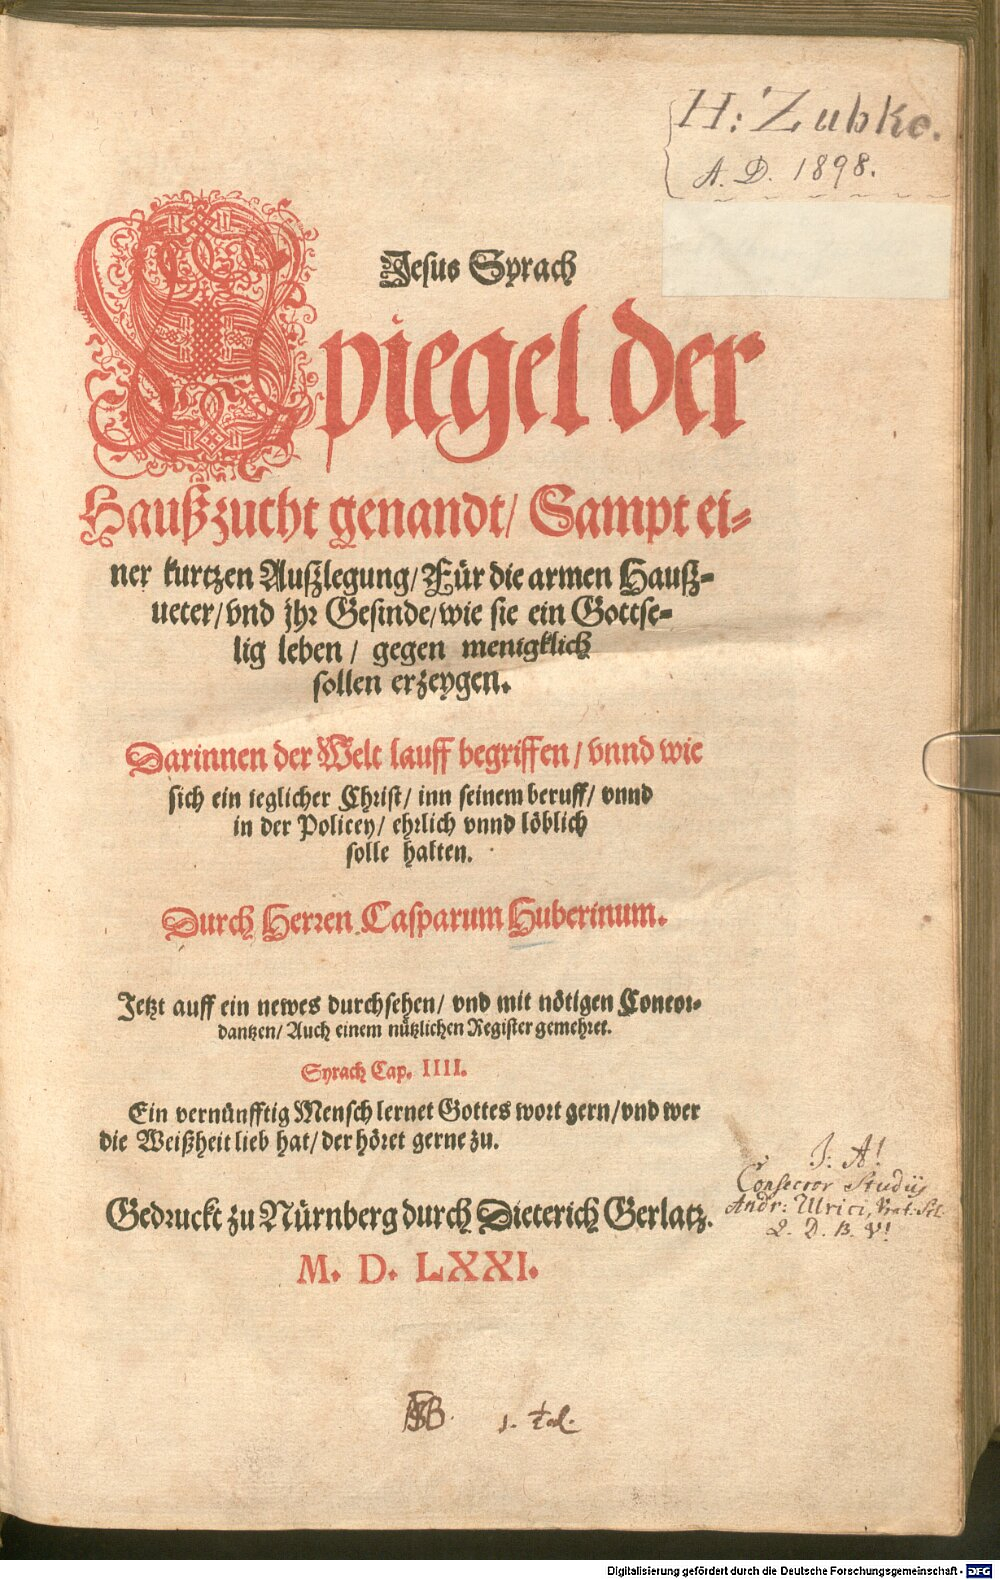 H: Zubke.
A. D. 1898.
Jesus Syrach
Spiegel der
Haußzucht genandt/ Sampt ei-
ner kurtzen Außlegung/ Für die armen Hauß-
ueter/ vnd jhr Gesinde/ wie sie ein Gottse-
lig leben/ gegen menigklich
sollen erzeygen.
Darinnen der Welt lauff begriffen/ vnnd wie
sich ein ieglicher Christ/ inn seinem beruff/ vnnd
in der Policey/ ehrlich vnnd löblich
solle halten.
Durch Herren Casparum Huberinum.
Jetzt auff ein newes durchsehen/ vnd mit nötigen Concor-
dantzen/ Auch einem nützlichen Register gemehret.
Syrach Cap. IIII.
Ein vernünfftig Mensch lernet Gottes wort gern/ vnd wer
die Weißheit lieb hat/ der höret gerne zu.
J: A!
Consecror Studiis
Andr: Ulrici,
Q. D. B. V!
Gedruckt zu Nürnberg durch Dieterich Gerlatz.
M. D. LXXI.
Digitalisierung gefördert durch die Deutsche Forschungsgemeinschaft - DFG